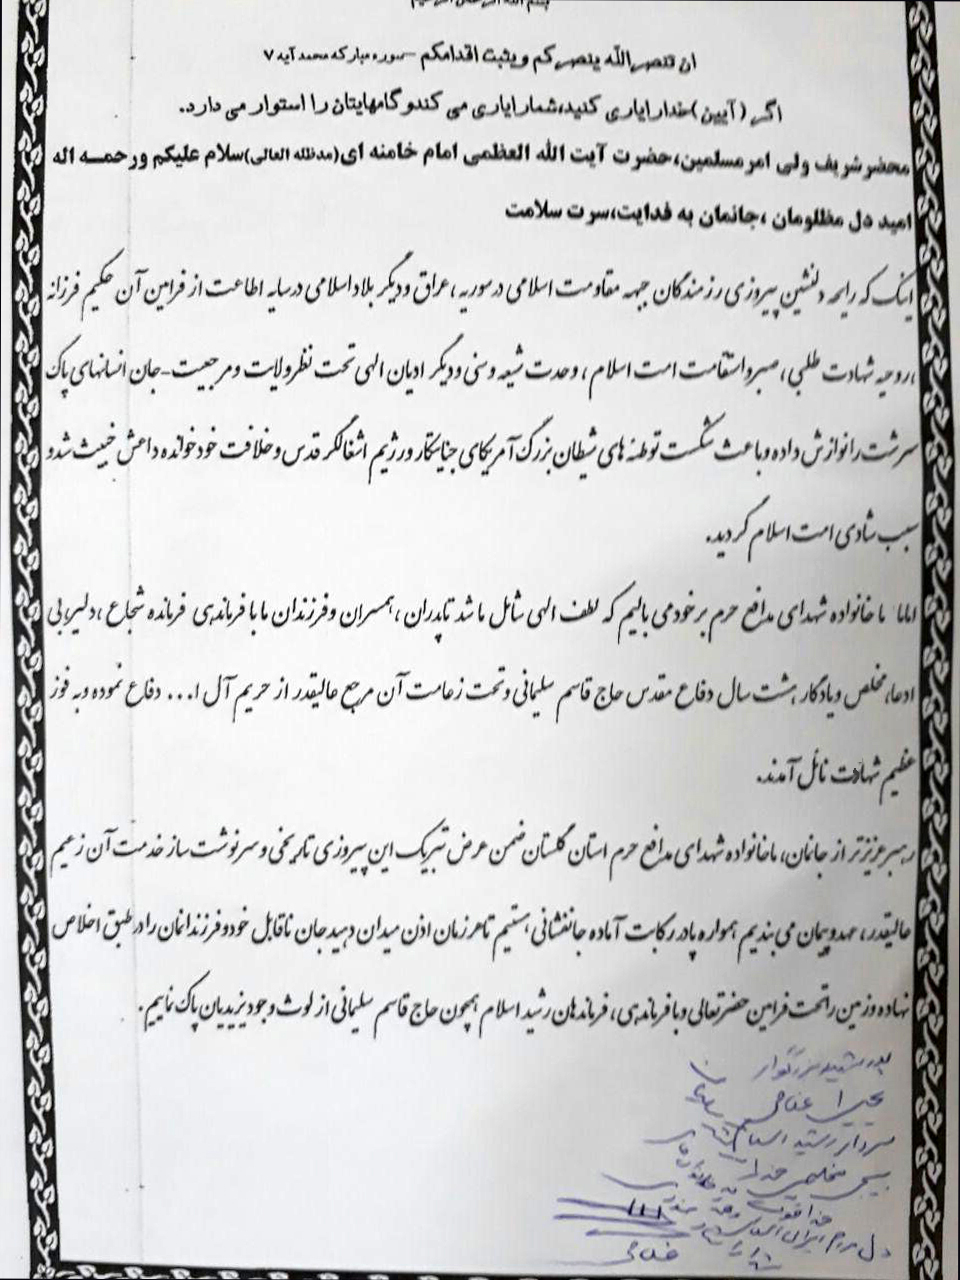 بسم الله الرحمن الرحیم
ان تنصر الله ینصرکم ویثبت اقدامکم -سوره مبارکه محمد آیه ۷
اگر (آیین)خدارایاری کنید،شمارایاری می کندوگامهایتان را استوار می دارد.
محضرشریف ولی امرمسلمین،حضرت آیت الله العظمی امام خامنه ای(مدظله العالی)سلام علیکم ورحمه اله
امید دل مظلومان ،جانمان به فدایت،سرت سلامت
اینک که رایحه دلنشین پیروزی رزمندگان جبهه مقاومت اسلامی درسوریه ،عراق ودیگر بلاداسلامی درسایه اطاعت از فرامین آن حکیم فرزانه
،روحیه شهادت طلبی ،صبرواستقامت امت اسلام ،وحدت شیعه وسنی ودیگر ادیان الهی تحت نظرولایت ومرجعیت-جان انسانهای پاک
سرشت رانوازش داده وباعث شکست توطئه های شیطان بزرگ آمریکای جنایتکار ورژیم اشغالگر قدس وخلافت خودخوانده داعش خبیث شدو
سبب شادی امت اسلام گردید.
اماما ما خانواده شهدای مدافع حرم برخودمی بالیم که لطف الهی شامل ماشد تاپدران ،همسران وفرزندان ما با فرماندهی فرمانده شجاع ،دلیر،بی
ادعا،مخلص ویادگار هشت سال دفاع مقدس حاج قاسم سلیمانی وتحت زعامت آن مرجع عالیقدر از حریم آل ا... دفاع نموده وبه فوز
عظیم شهادت نائل آمدند.
رهبرعزیزتر از جانمان،ماخانواده شهدای مدافع حرم استان گلستان ضمن عرض تبریک این پیروزی تاریخی وسرنوشت ساز خدمت آن زعیم
عالیقدر،عهدوپیمان می بندیم همواره پادر رکابت آماده جانفشانی هستیم تاهرزمان اذن میدان دهیدجان ناقابل خودوفرزندانمان رادرطبق اخلاص
نهاده وزمین راتحت فرامین حضرتعالی وبافرماندهی ،فرماندهان رشید اسلام همچون حاج قاسم سلیمانی از لوث وجود یزیدیان پاک نماییم.
پدر شهید بزرگوار
سردار رشید اسلام